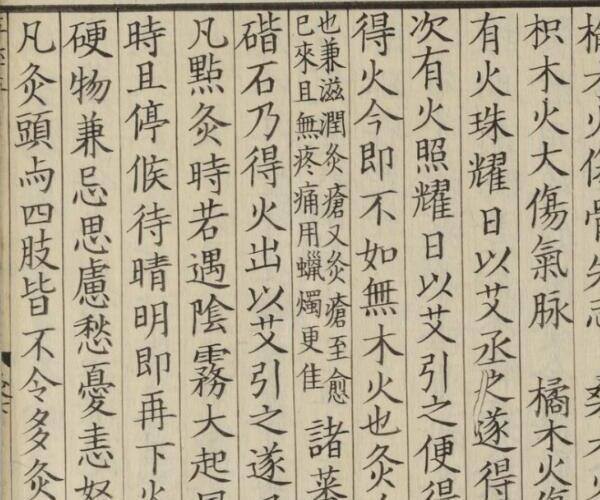 枳木火大傷氣脉 橘木火
有火珠耀日以艾丞之遂得
次有火照耀日以艾引之便得
得火今即不如無木火也灸
也兼滋潤灸瘡又灸瘡至愈
已來且無疼痛用蠟燭更佳
諸
碏石乃得火出以艾引之遂
凡㸃灸時若遇陰霧大起
時且停候待晴明即再下火
硬物兼忌思慮愁憂恚怒
凡灸頭与四肢皆不令多灸